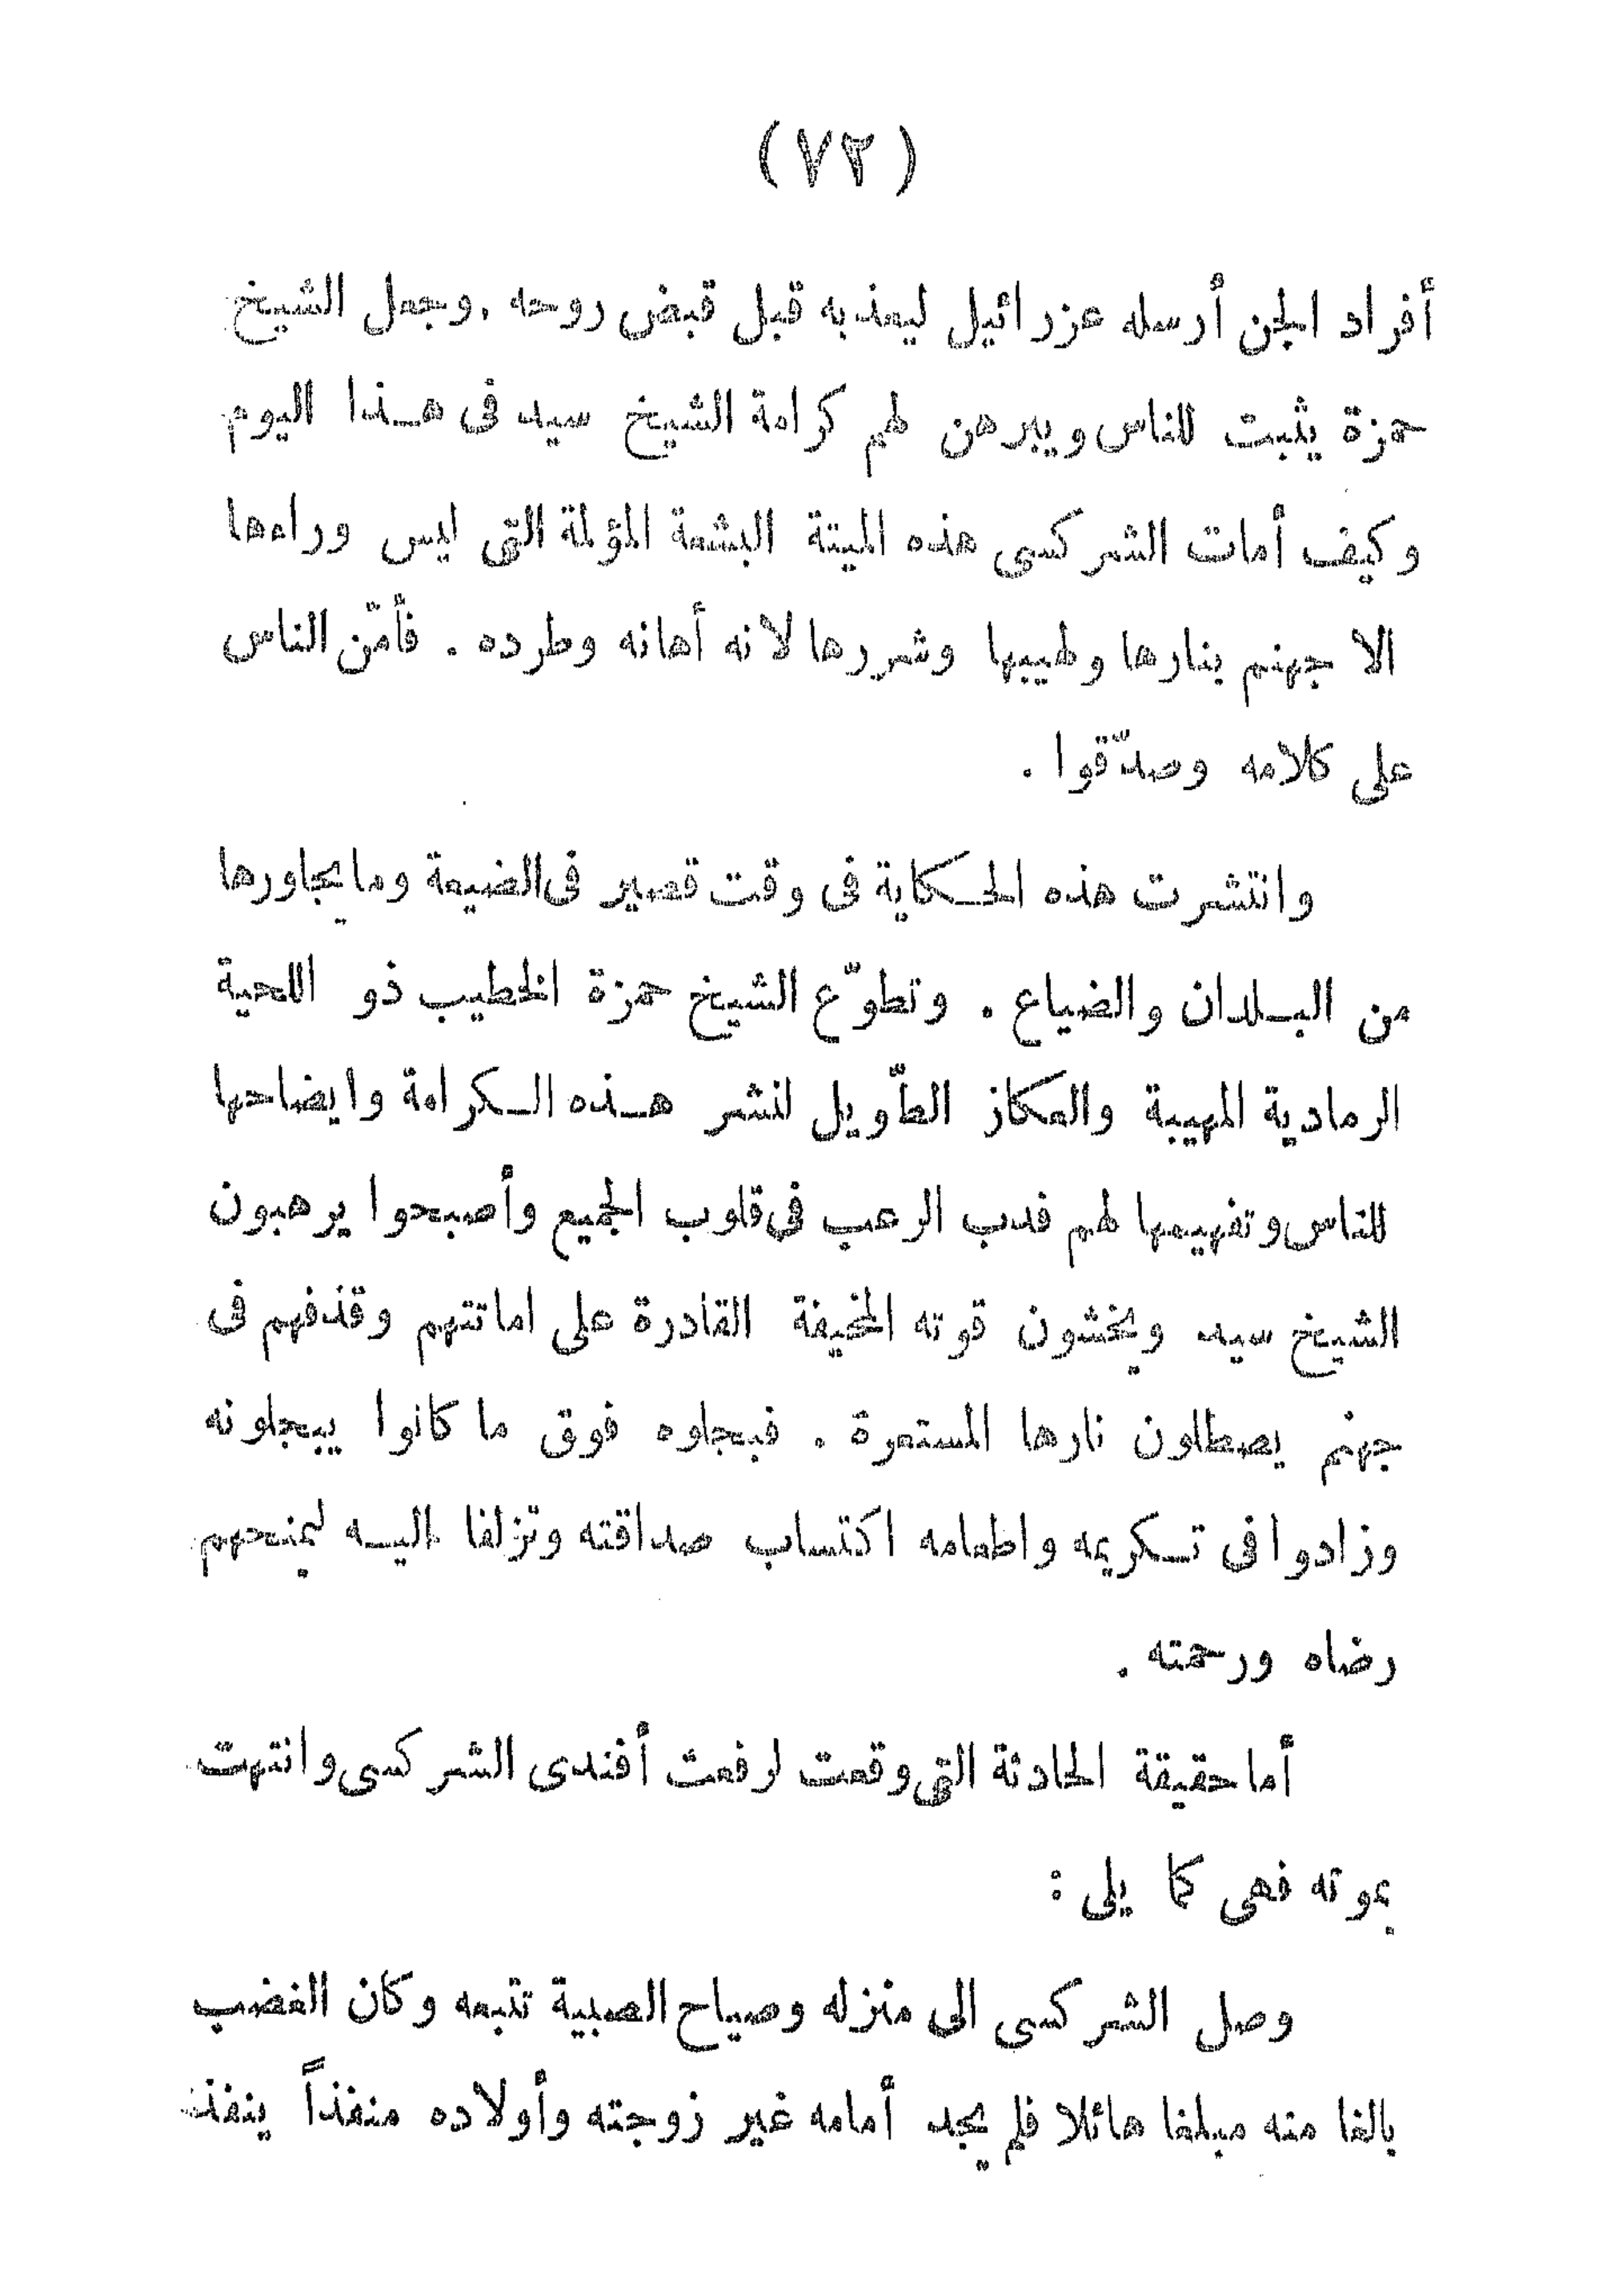 (٧٢)
أفراد الجن أرسله عزرائيل ليعذبه قبل قبض روحه . وجعل الشيخ
حمزة يثبت للناس ويبرهن لهم كرامة الشيخ سيد فى هـذا اليوم
وكيف أمات الشركسى هذه الميتة البشعة المؤلمة التى ليس وراءها
الا جهنم بنارها ولهيبها وشررها لانه أهانه وطرده . فأمّن الناس
على كلامه وصدّقوا .
وانتشرت هذه الحـكاية فى وقت قصير فى الضيعة وما يجاورها
من البـلدان والضياع . وتطوّع الشيخ حمزة الخطيب ذو اللحية
الرمادية المهيبة والعكاز الطّويل لنشر هـذه الـكرامة وايضاحها
للناس وتفهيمها لهم فدب الرعب فى قلوب الجميع وأصبحوا يرهبون
الشيخ سيد ويخشون قوته المخيفة القادرة على اماتتهم وقذفهم فى
جهنم يصطلون نارها المستعرة . فبجلوه فوق ما كانوا يبجلونه
وزادوا فى تـكريمه واطعامه اكتساب صداقته وتزلفا اليـه ليمنحهم
رضاه ورحمته .
أما حقيقة الحادثة التى وقعت لرفعت أفندى الشركسى وانتهت
بموته فهى كما يلى :
وصل الشركسى الى منزله وصياح الصبية تتبعه وكان الغضب
بالغا منه مبلغا هائلا فلم يجد أمامه غير زوجته وأولاده منفذاً ينفذ